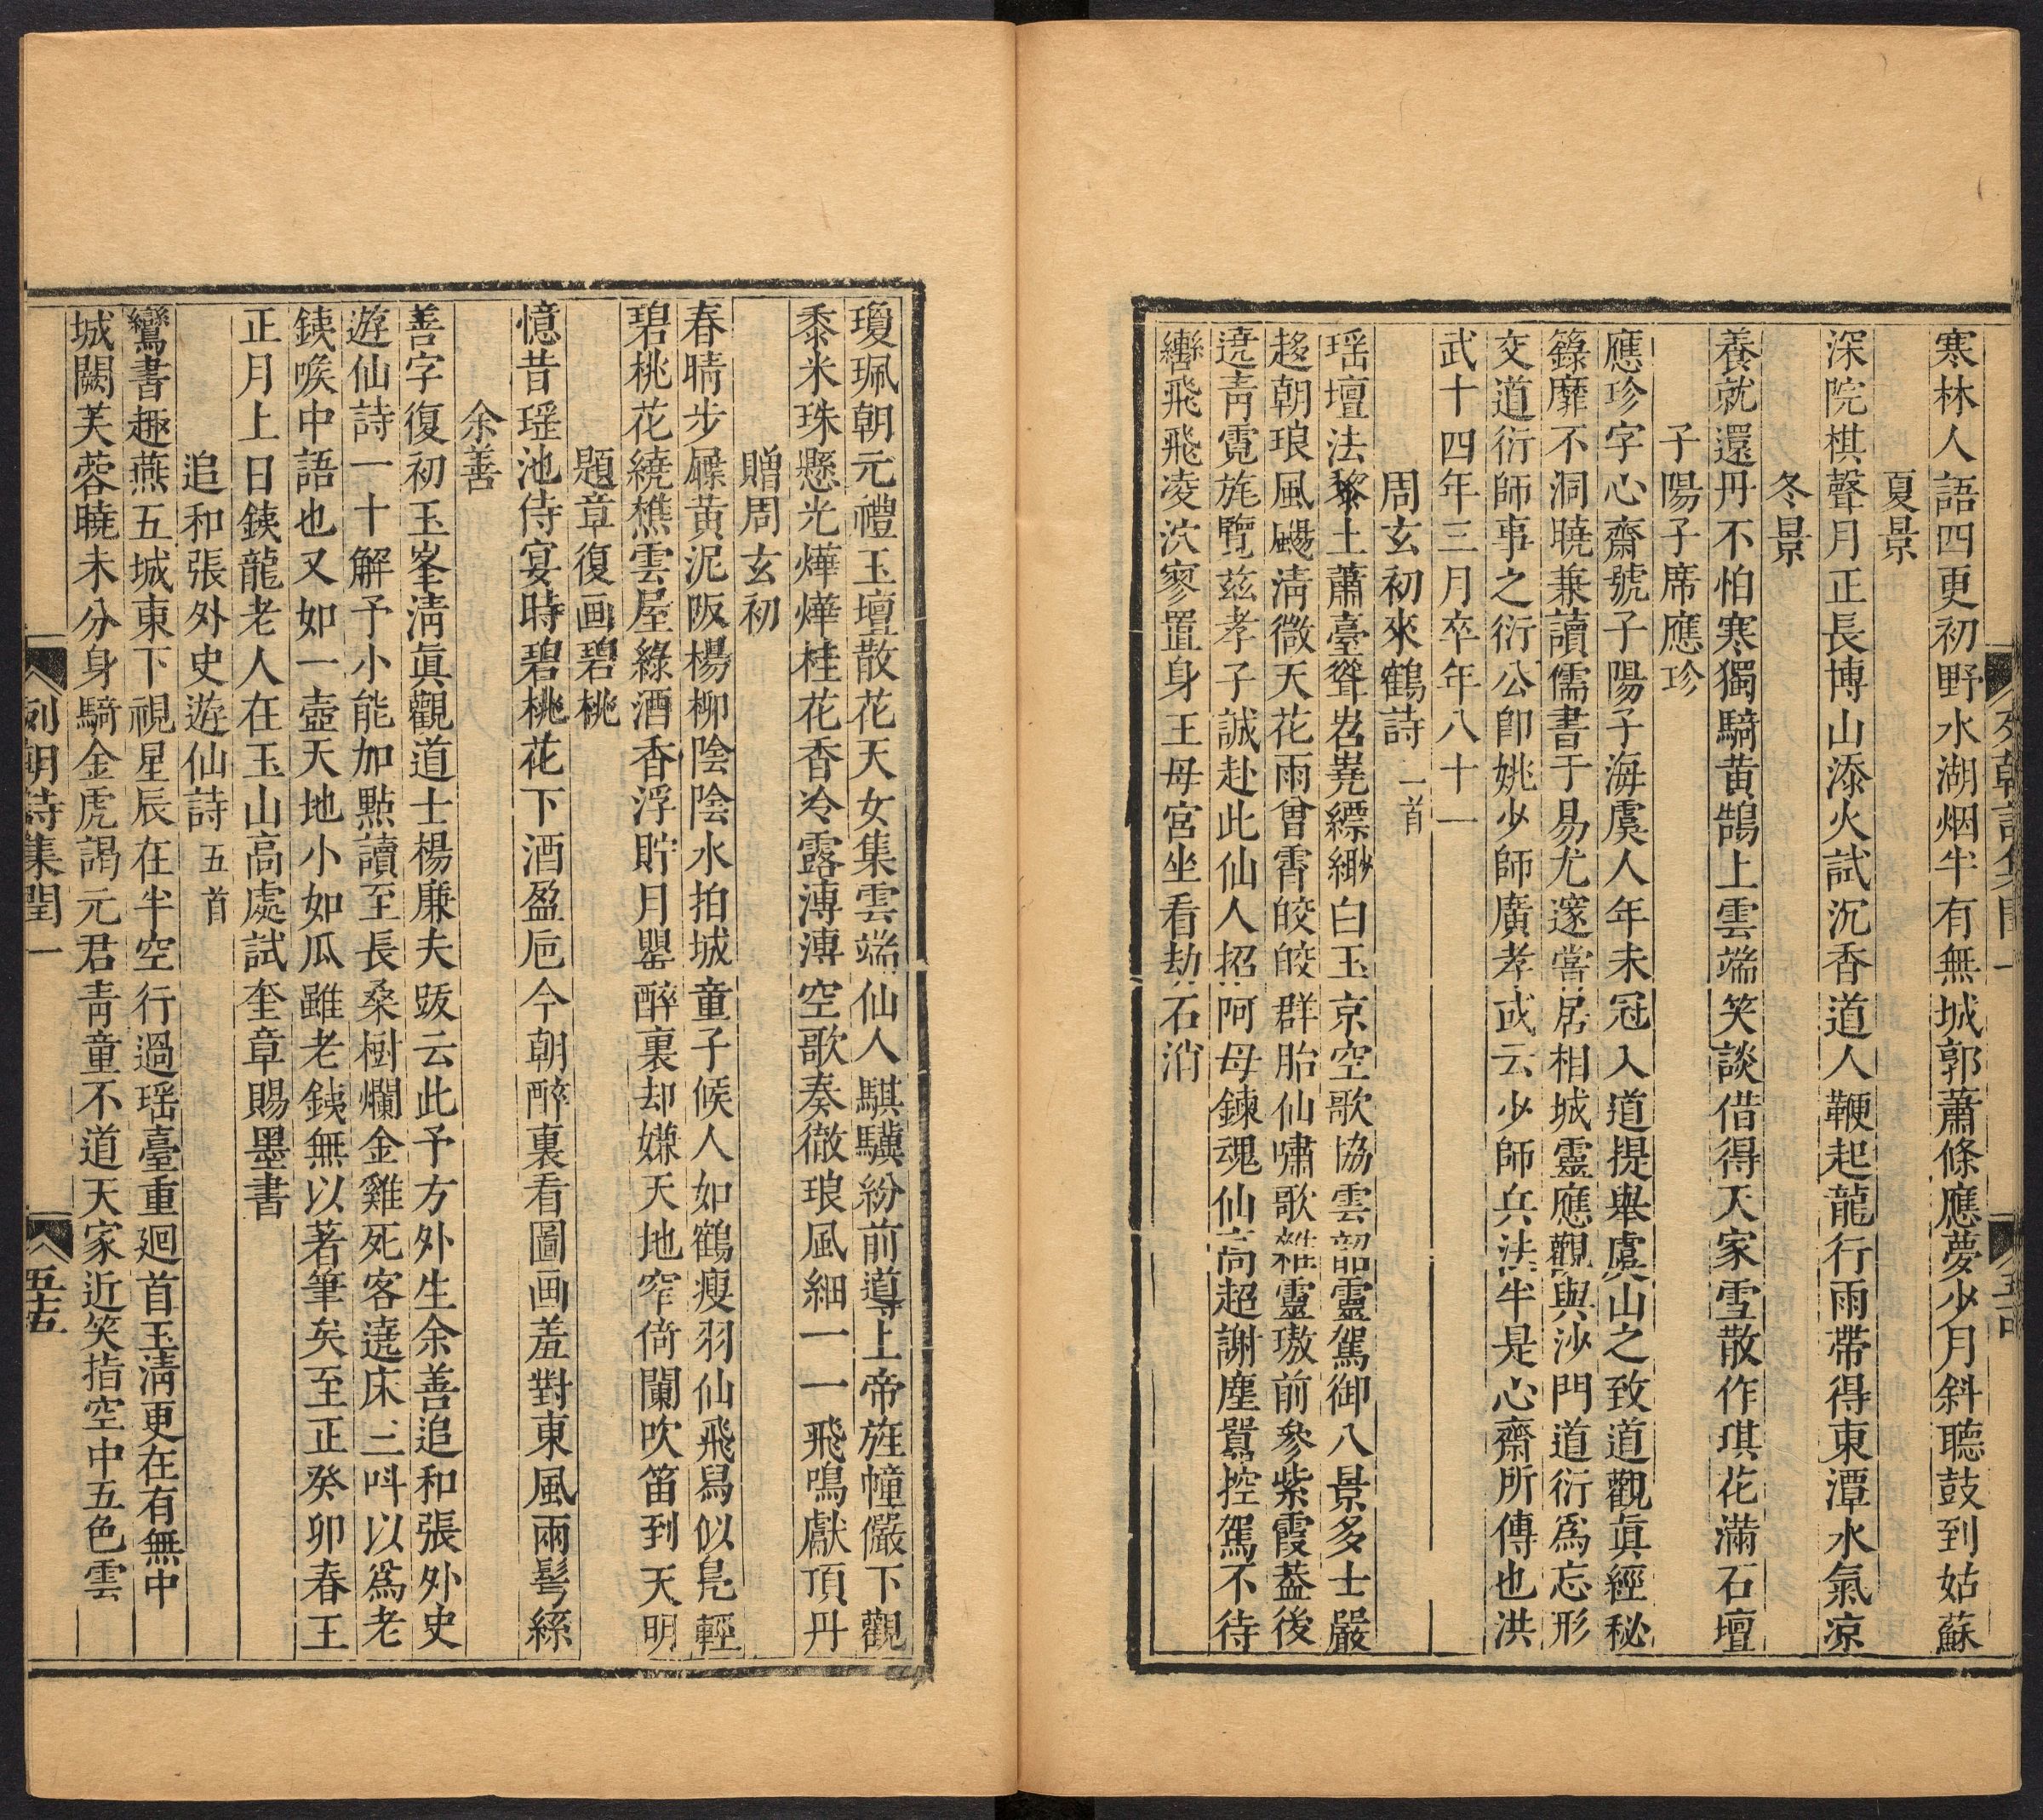 寒林人語四更初野水湖烟半有無城郭蕭條應夢少月斜聽鼓到姑蘇
夏景
深院棋聲月正長博山添火試沉香道人鞭起龍行雨帶得東潭水氣凉
冬景
養就還丹不怕寒獨騎黄鵠上雲端笑談借得天家雪散作琪花滿石壇
子陽子席應珍
應珍字心齋號子陽子海虞人年未冠入道提舉虞山之致道觀眞經秘
籙靡不洞曉兼讀儒書于易尤邃嘗居相城靈應觀與沙門道衍爲忘形
交道衍師事之衍公卽姚少師廣孝或云少師兵法半是心齋所傳也洪
武十四年三月卒年八十一
周玄初來鶴詩 一首
瑶壇法黎土蕭臺聳岧嶤縹緲白玉京空歌協雲韶靈駕御八景多士嚴
趍朝琅風颺淸微天花雨曾霄皎皎群胎仙嘯歌雜靈璈前參紫霞葢後
遶靑霓旄覽兹孝子誠赴此仙人招阿母鍊魂仙高超謝塵嚣控駕不待
轡飛飛凌泬寥置身王母宮坐看劫石消
列朝詩集閏一
瓊珮朝元禮玉壇散花天女集雲端仙人騏驥紛前導上帝旌幢儼下觀
黍米珠懸光燁燁桂花香冷露漙漙空歌奏徹琅風細一一飛鳴獻頂丹
贈周玄初
春晴步屧黄泥阪楊柳陰陰水拍城童子候人如鶴瘦羽仙飛舄似鳧輕
碧桃花繞樵雲屋綠酒香浮貯月罌醉裏却嫌天地窄倚闌吹笛到天明
題章復画碧桃
憶昔瑶池侍宴時碧桃花下酒盈巵今朝醉裏看圖画羞對東風兩髩絲
余善
善字復初玉峯淸眞觀道士楊廉夫跋云此予方外生余善追和張外史
遊仙詩一十解予小能加點讀至長桑樹爛金雞死客遶床三呌以爲老
銕喉中語也又如一壺天地小如瓜雖老銕無以著筆矣至正癸卯春王
正月上日銕龍老人在玉山高處試奎章賜墨書
追和張外史遊仙詩 五首
鸞書趣燕五城東下視星辰在半空行過瑶臺重廻首玉淸更在有無中
城闕芙蓉曉未分身騎金虎謁元君靑童不道天家近笑指空中五色雲
列朝詩集閏一
五十五